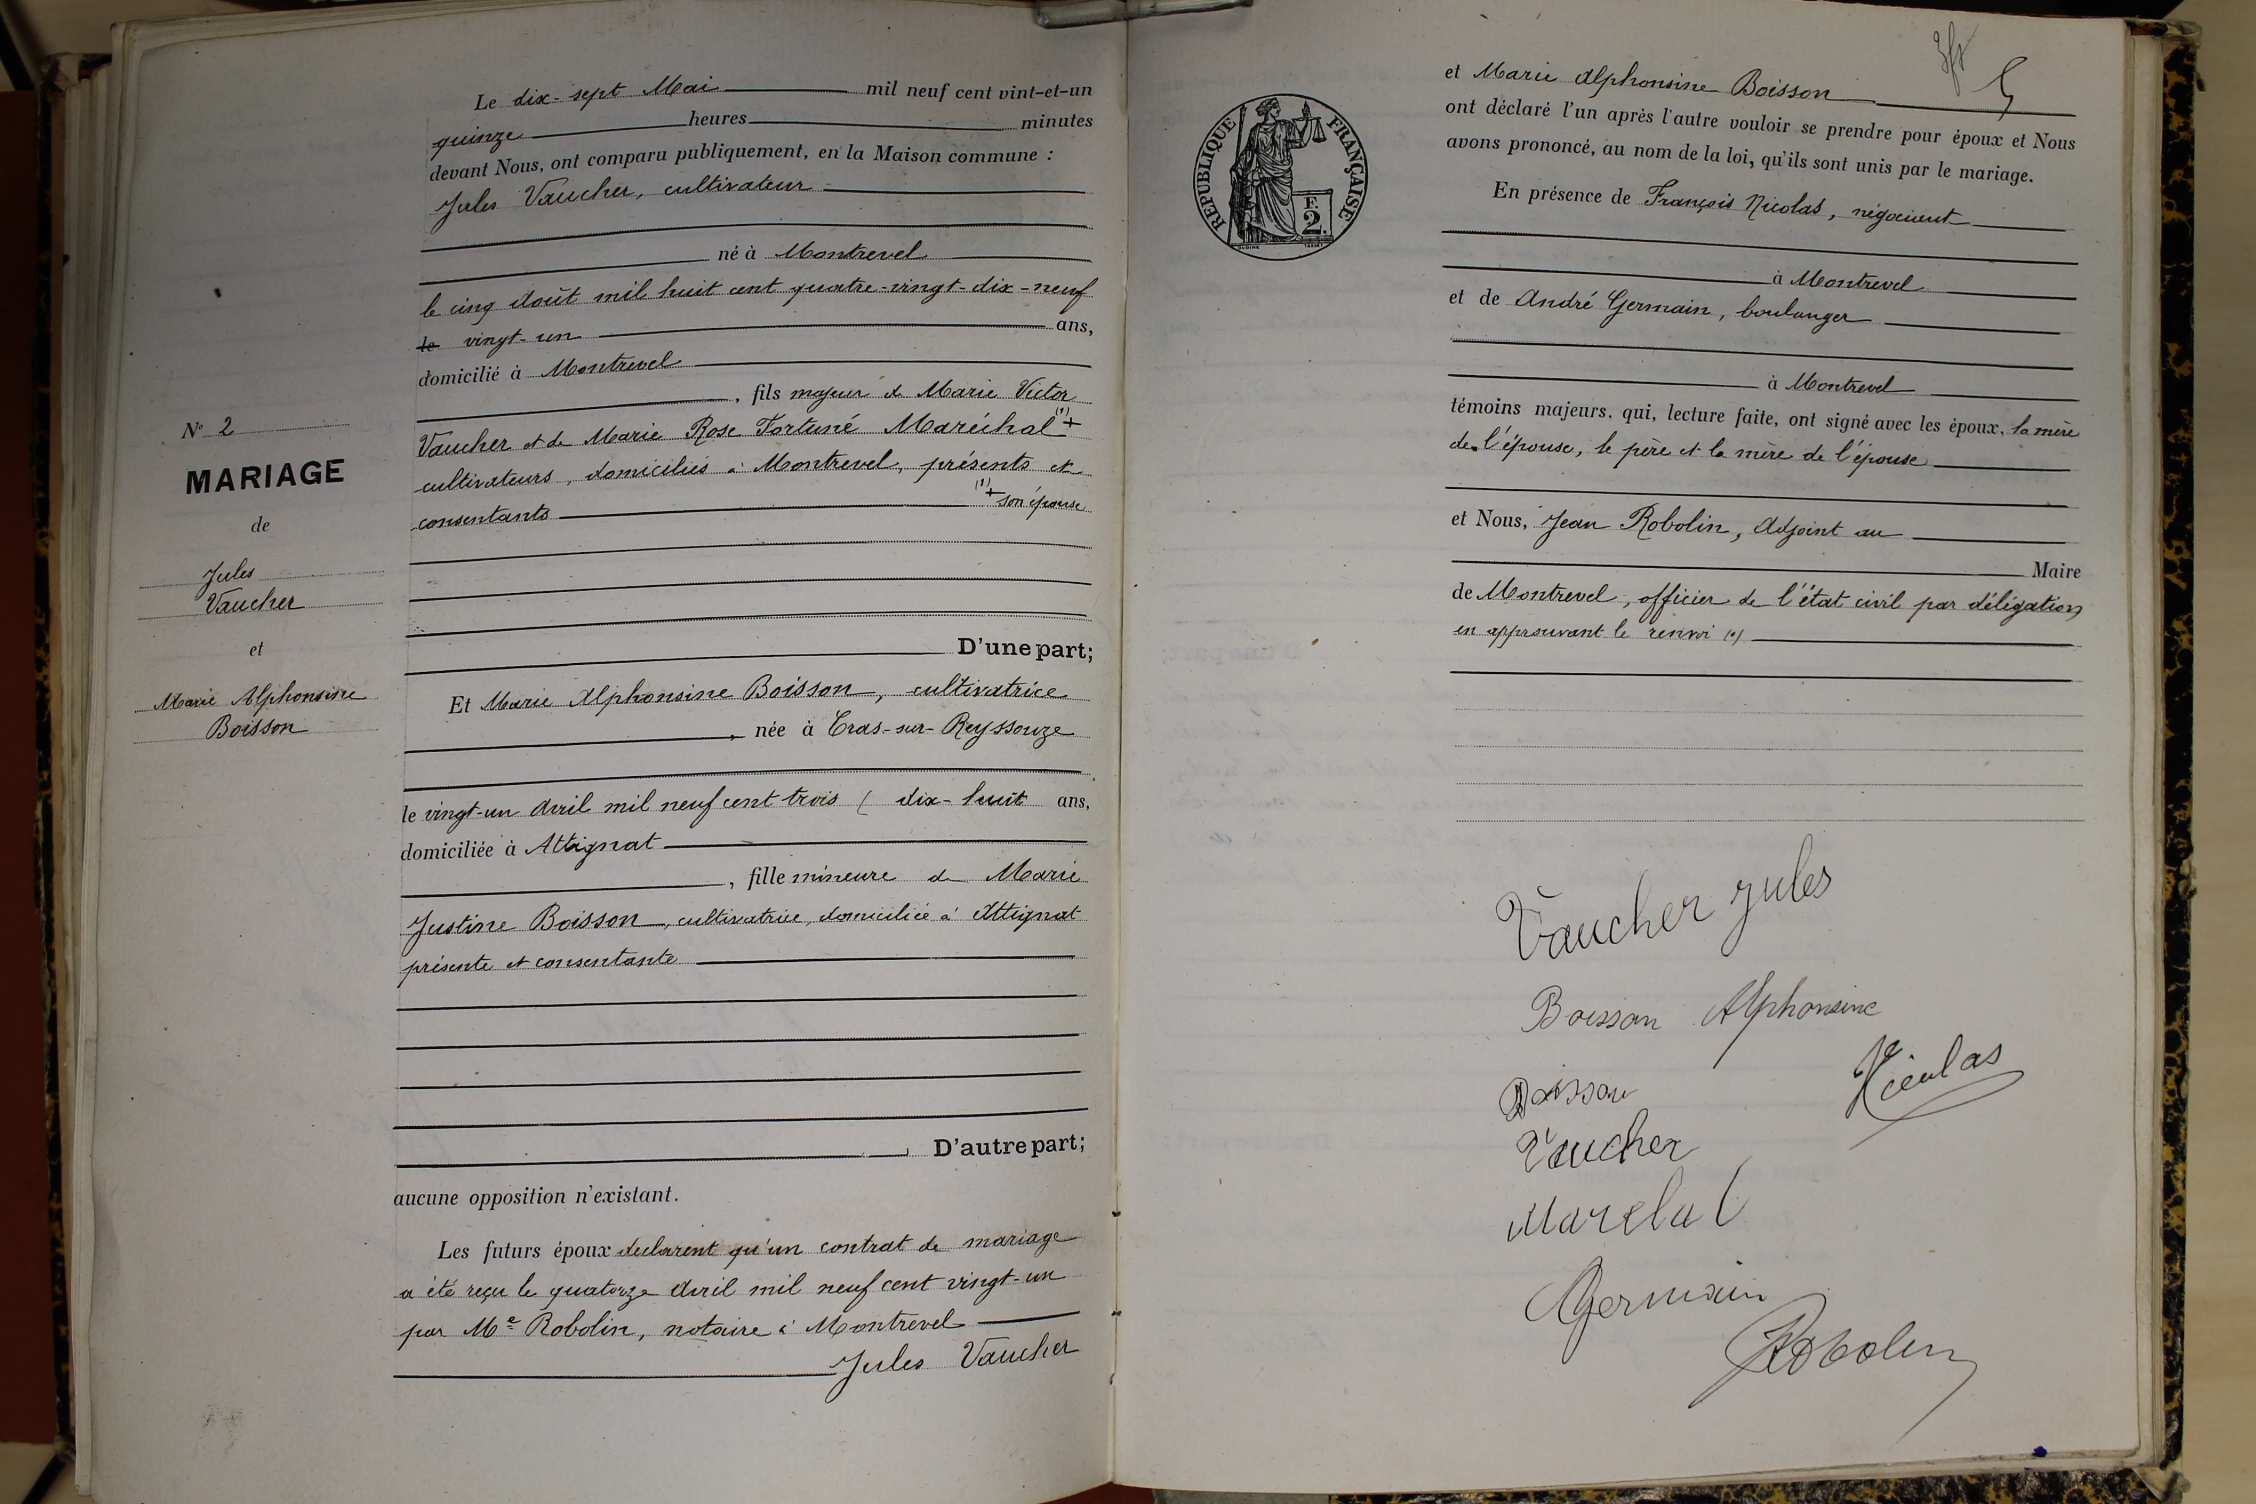 Le dix-sept Mai mil neuf cent vint-et-un
quinze heures minutes
devant Nous, ont comparu publiquement, en la Maison commune :
Jules Vaucher, cultivateur
né à Montrevel
le cinq Août mil huit cent quatre-vingt-dix-neuf
le vingt-un ans,
domicilié à Montrevel
, fils majeur de Marie Victor
Vaucher et de Marie Rose Fortuné Maréchal (1)+
cultivateurs, domiciliés à Montrevel, présents et
consentants (1)+ son épouse
D'une part;
N° 2
MARIAGE
de
Jules
Vaucher
et
Marie Alphonsine
Boisson
Et Marie Alphonsine Boisson, cultivatrice
, née à Cras-sur-Reyssouze
le vingt-un Avril mil neuf cent trois ( dix-huit ans,
domiciliée à Attignat
, fille mineure de Marie
Justine Boisson, cultivatrice, domiciliée à Attignat
présente et consentante
D'autre part;
aucune opposition n'existant.
Les futurs époux déclarent qu'un contrat de mariage
a été reçu le quatorze Avril mil neuf cent vingt-un
par Me Robolin, notaire à Montrevel
Jules Vaucher
et Marie Alphonsine Boisson
ont déclaré l'un après l'autre vouloir se prendre pour époux et Nous
avons prononcé, au nom de la loi, qu'ils sont unis par le mariage.
RÉPUBLIQUE FRANÇAISE
F.
2.
En présence de François Nicolas, négociant
à Montrevel
et de André Germain, boulanger
à Montrevel
témoins majeurs, qui, lecture faite, ont signé avec les époux, la mère
de l'épouse, le père et la mère de l'épouse
et Nous, Jean Robolin, Adjoint au
Maire
de Montrevel, officier de l'état civil par délégation
en approuvant le renvoi (1)
Vaucher Jules
Boisson Alphonsine
Nicolas
Boisson
Vaucher
Marelal
AGermain
JRobolin